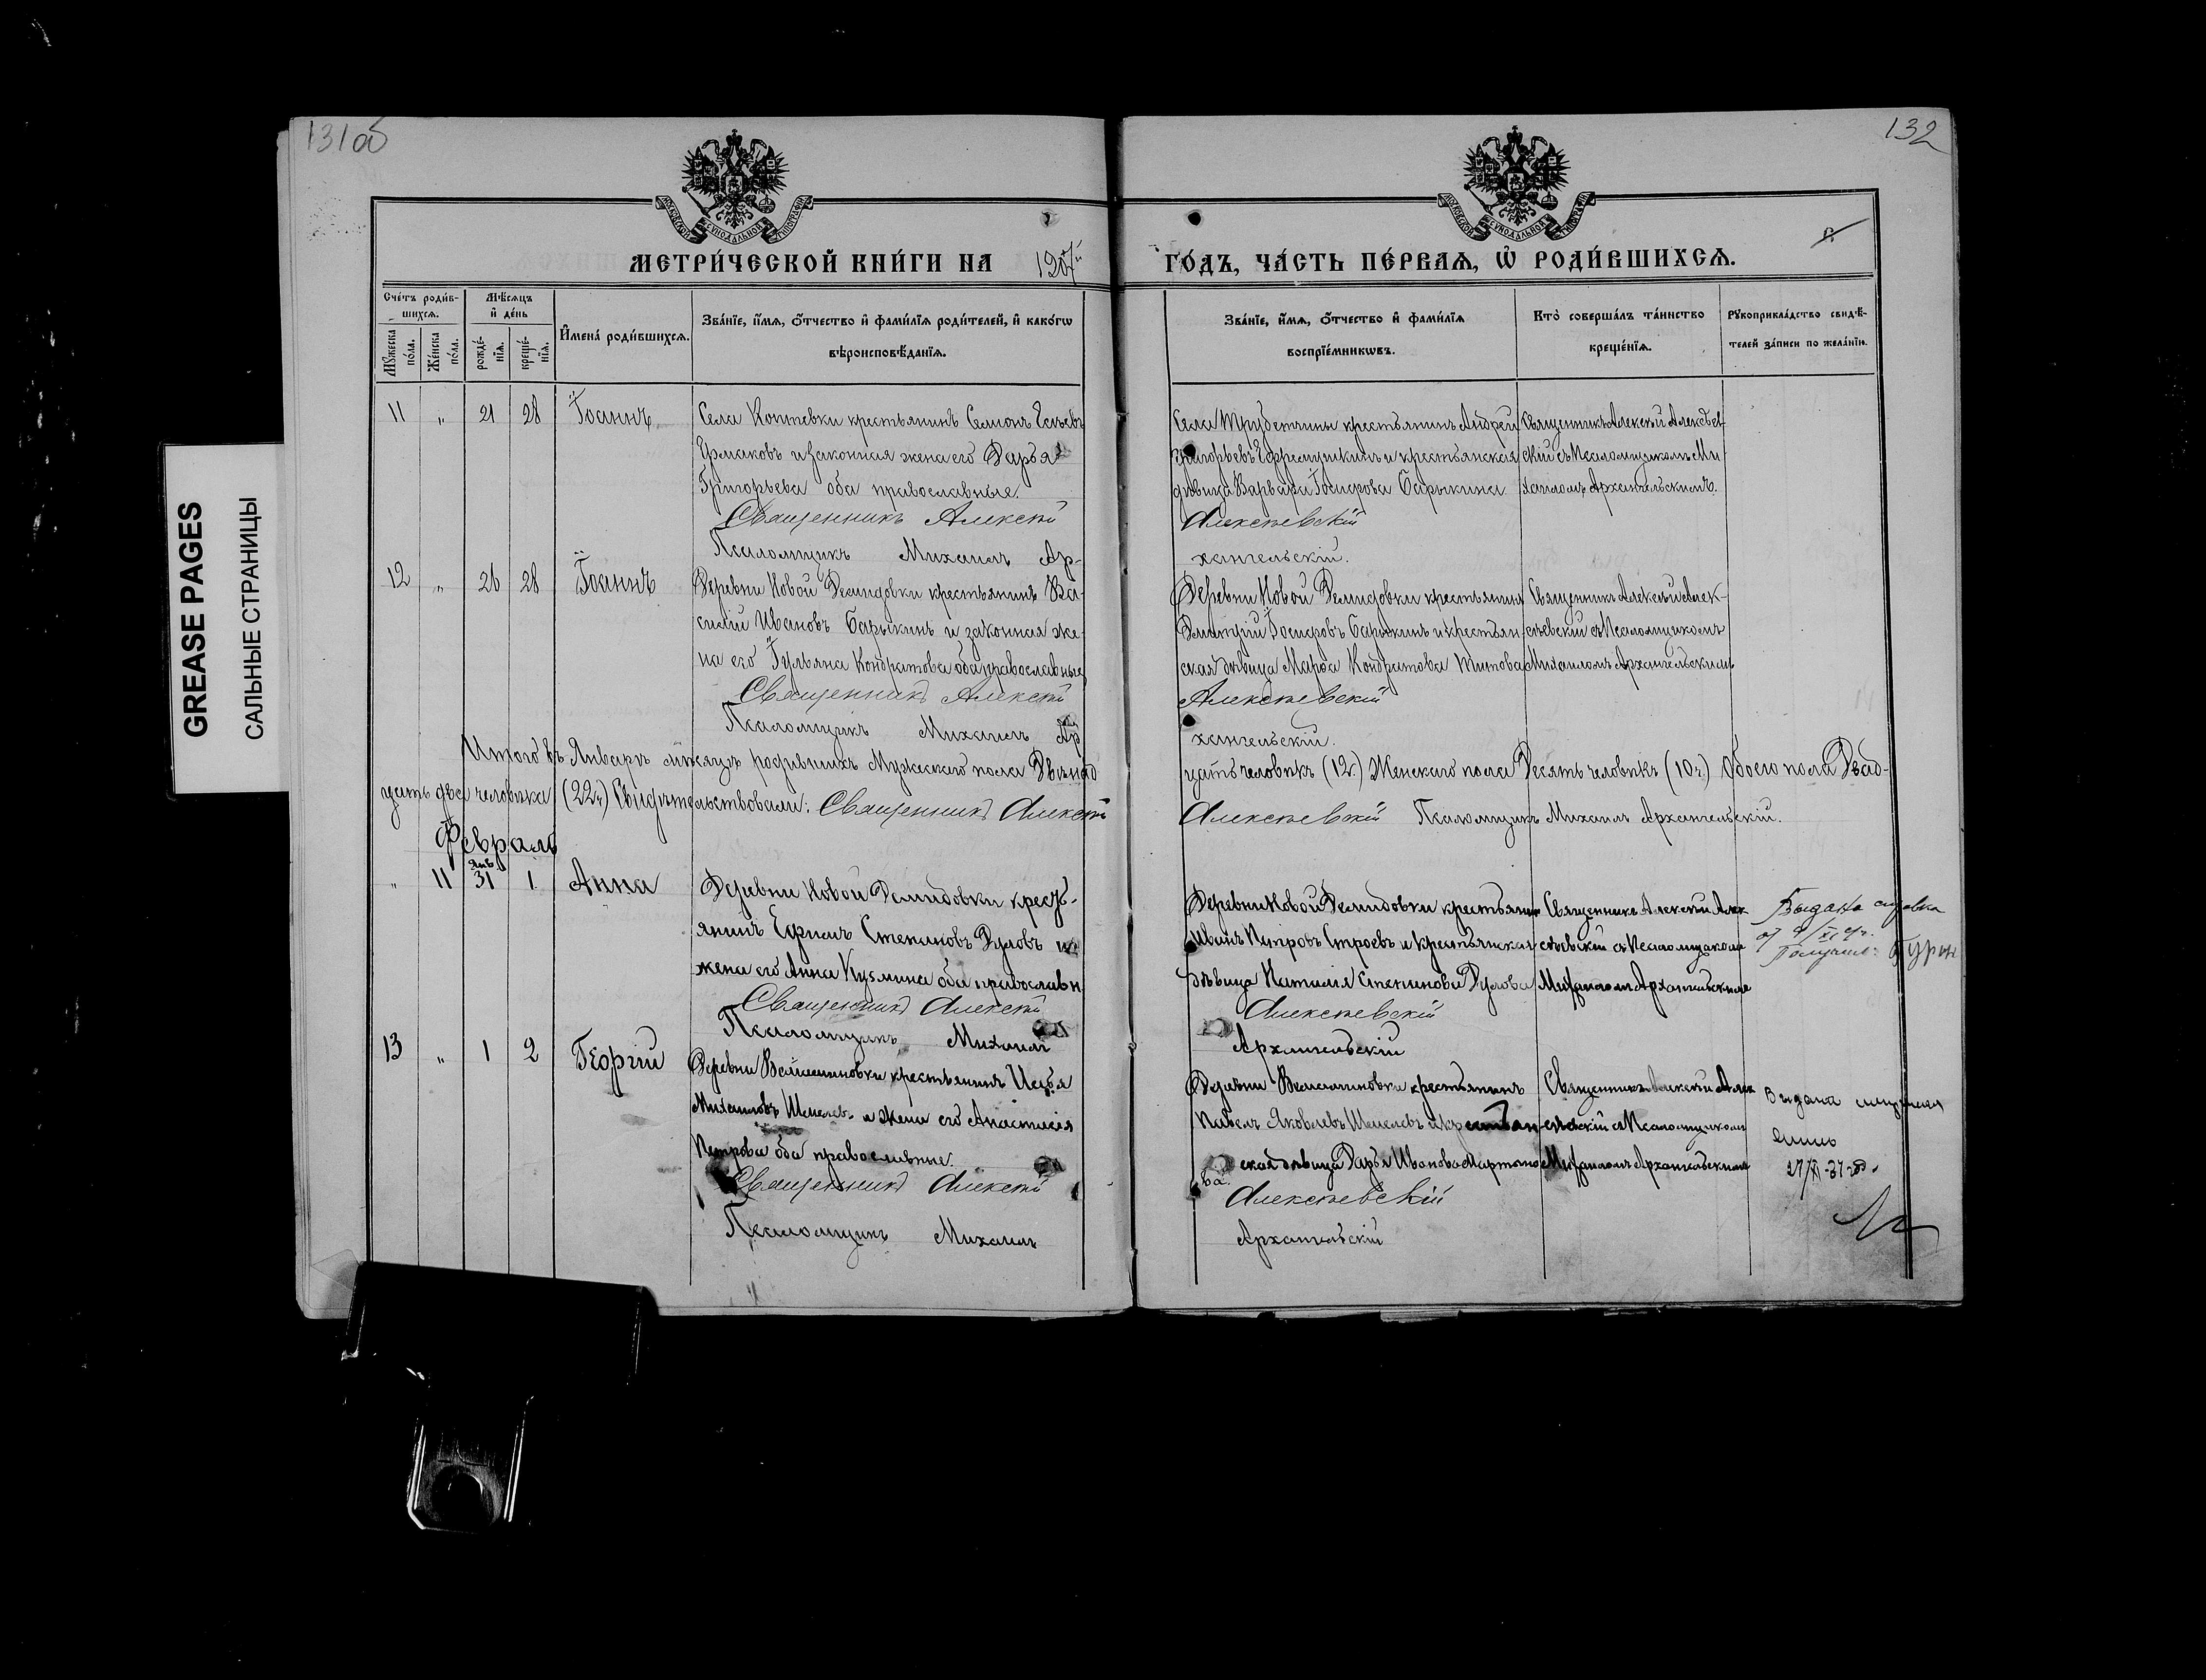 131 об
132
МОСКОВСКОЙ СѴНОДАЛЬНОЙ ТИПОГРАФІИ
МОСКОВСКОЙ СѴНОДАЛЬНОЙ ТИПОГРАФІИ
МЕТРИ́ЧЕСКОЙ КНИ́ГИ НА
ГО́ДЪ, ЧА́СТЬ ПЕ́РВАѦ, Ѡ҆ РОДИ́ВШИХСѦ.
Сче́тъ роди́в-
шихсѧ.
Мꙋ́жеска по́ла.
Же́нска по́ла.
Мѣ́сѧцъ
и҆ де́нь
рожде́-
нїѧ.
креще́-
нїѧ.
И҆мена̀ роди́вшихсѧ.
Зва́нїе, и҆́мѧ, ѻ҆́тчество и҆ фамилїѧ роди́телей, и҆ како́гѡ
вѣроисповѣ́данїѧ.
Зва́нїе, и҆́мѧ, ѻ҆́тчество и҆ фами́лїѧ
воспрїе́мникѡвъ.
Кто̀ соверша́лъ та́инство
креще́нїѧ.
Рꙋкоприкла́дство свидѣ́-
телей за́писи по жела́нїю.
11 " 21 28 Іоаннъ
Села Коптевки крестьянинъ Семіонъ
Ермаковъ и законная жена его Дарья
Григорьева оба православные.
Священникъ Алексѣй
Псаломщикъ Михаилъ Ар-
Села Трубетчины крестьянинъ Андрей
Григорьевъ Ефремушкинъ и крестьянская
дѣвица Варвара Іосифова Барыкина
Алексѣевскій
хангельскій.
Священникъ Алексѣй Алексѣев-
скій съ Псаломщикомъ Ми-
хаиломъ Архангельскимъ.
12 " 26 28 Іоаннъ
Деревни Новой Демидовки крестьянинъ Ва-
силій Ивановъ Барыкинъ и законная же-
на его Іульяна Кондратова оба православные
Священникъ Алексѣй
Псаломщикъ Михаилъ Ар
Деревни Новой Демидовки крестьянинъ
Димитрій Іосифовъ Барыкинъ и крестьян-
ская дѣвица Марѳа Кондратова Титова
Алексѣевскій
хангельскій.
Священникъ Алексѣй Алек-
сѣевскій съ Псаломщикомъ
Михаиломъ Архангельскимъ
Итого въ Январѣ мѣсяцѣ родившихъ Мужескаго пола Двѣнад
цать человѣкъ (12.) Женскаго пола Десять человѣкъ (10ч.) Обоего пола Двад-
цать два человѣка (22ч) Свидѣтельствовали: Священникъ Алексѣй
Алексѣевскій Псаломщикъ Михаилъ Архангельскій.
Февраль
" 11 Янв. 31 1 Анна
Деревни Новой Демидовки кресть-
янинъ Ефимъ Степановъ Дуловъ и
жена его Анна Кузмина оба православн
Священникъ Алексѣй
Псаломщикъ Михаилъ
Деревни Новой Демидовки крестьянинъ
Иванъ Петровъ Строевъ и крестьянская
дѣвица Наталія Степанова Дулова
Алексѣевскій
Архангельскій
Священникъ Алексѣй Алек
сѣевскій съ Псаломщикомъ
Михаиломъ Архангельскимъ
Выдана справка
13 " 1 2 Георгій
Деревни крестьянинъ Илья
Михаиловъ Шмелевъ и жена его Анастасія
Петрова оба православные.
Священникъ Алексѣй
Псаломщикъ Михаилъ
Деревни крестьянинъ
Павелъ Яковлевъ Шмелевъ и крестьян-
ская дѣвица Дарья Иванова Мартыно
ва.
Алексѣевскій
Архангельскій
Священникъ Алексѣй Алек
сѣевскій съ Псаломщикомъ
Михаиломъ Архангельскимъ
Выдана
GREASE PAGES
САЛЬНЫЕ СТРАНИЦЫ